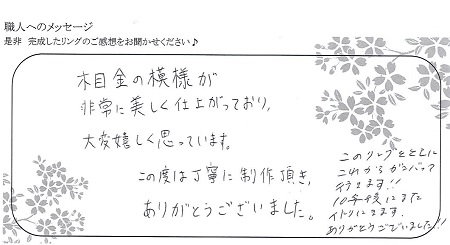 職人へのメッセージ
是非 完成したリングのご感想をお聞かせください♪
木目金の模様が
非常に美しく仕上がっており、
大変嬉しく思っています。
この度は丁寧に制作頂き、
ありがとうございました。
このリングとともに
これからがんばって
行きます!!
10年後にまた
イトリにきます。
ありがとうございました!!